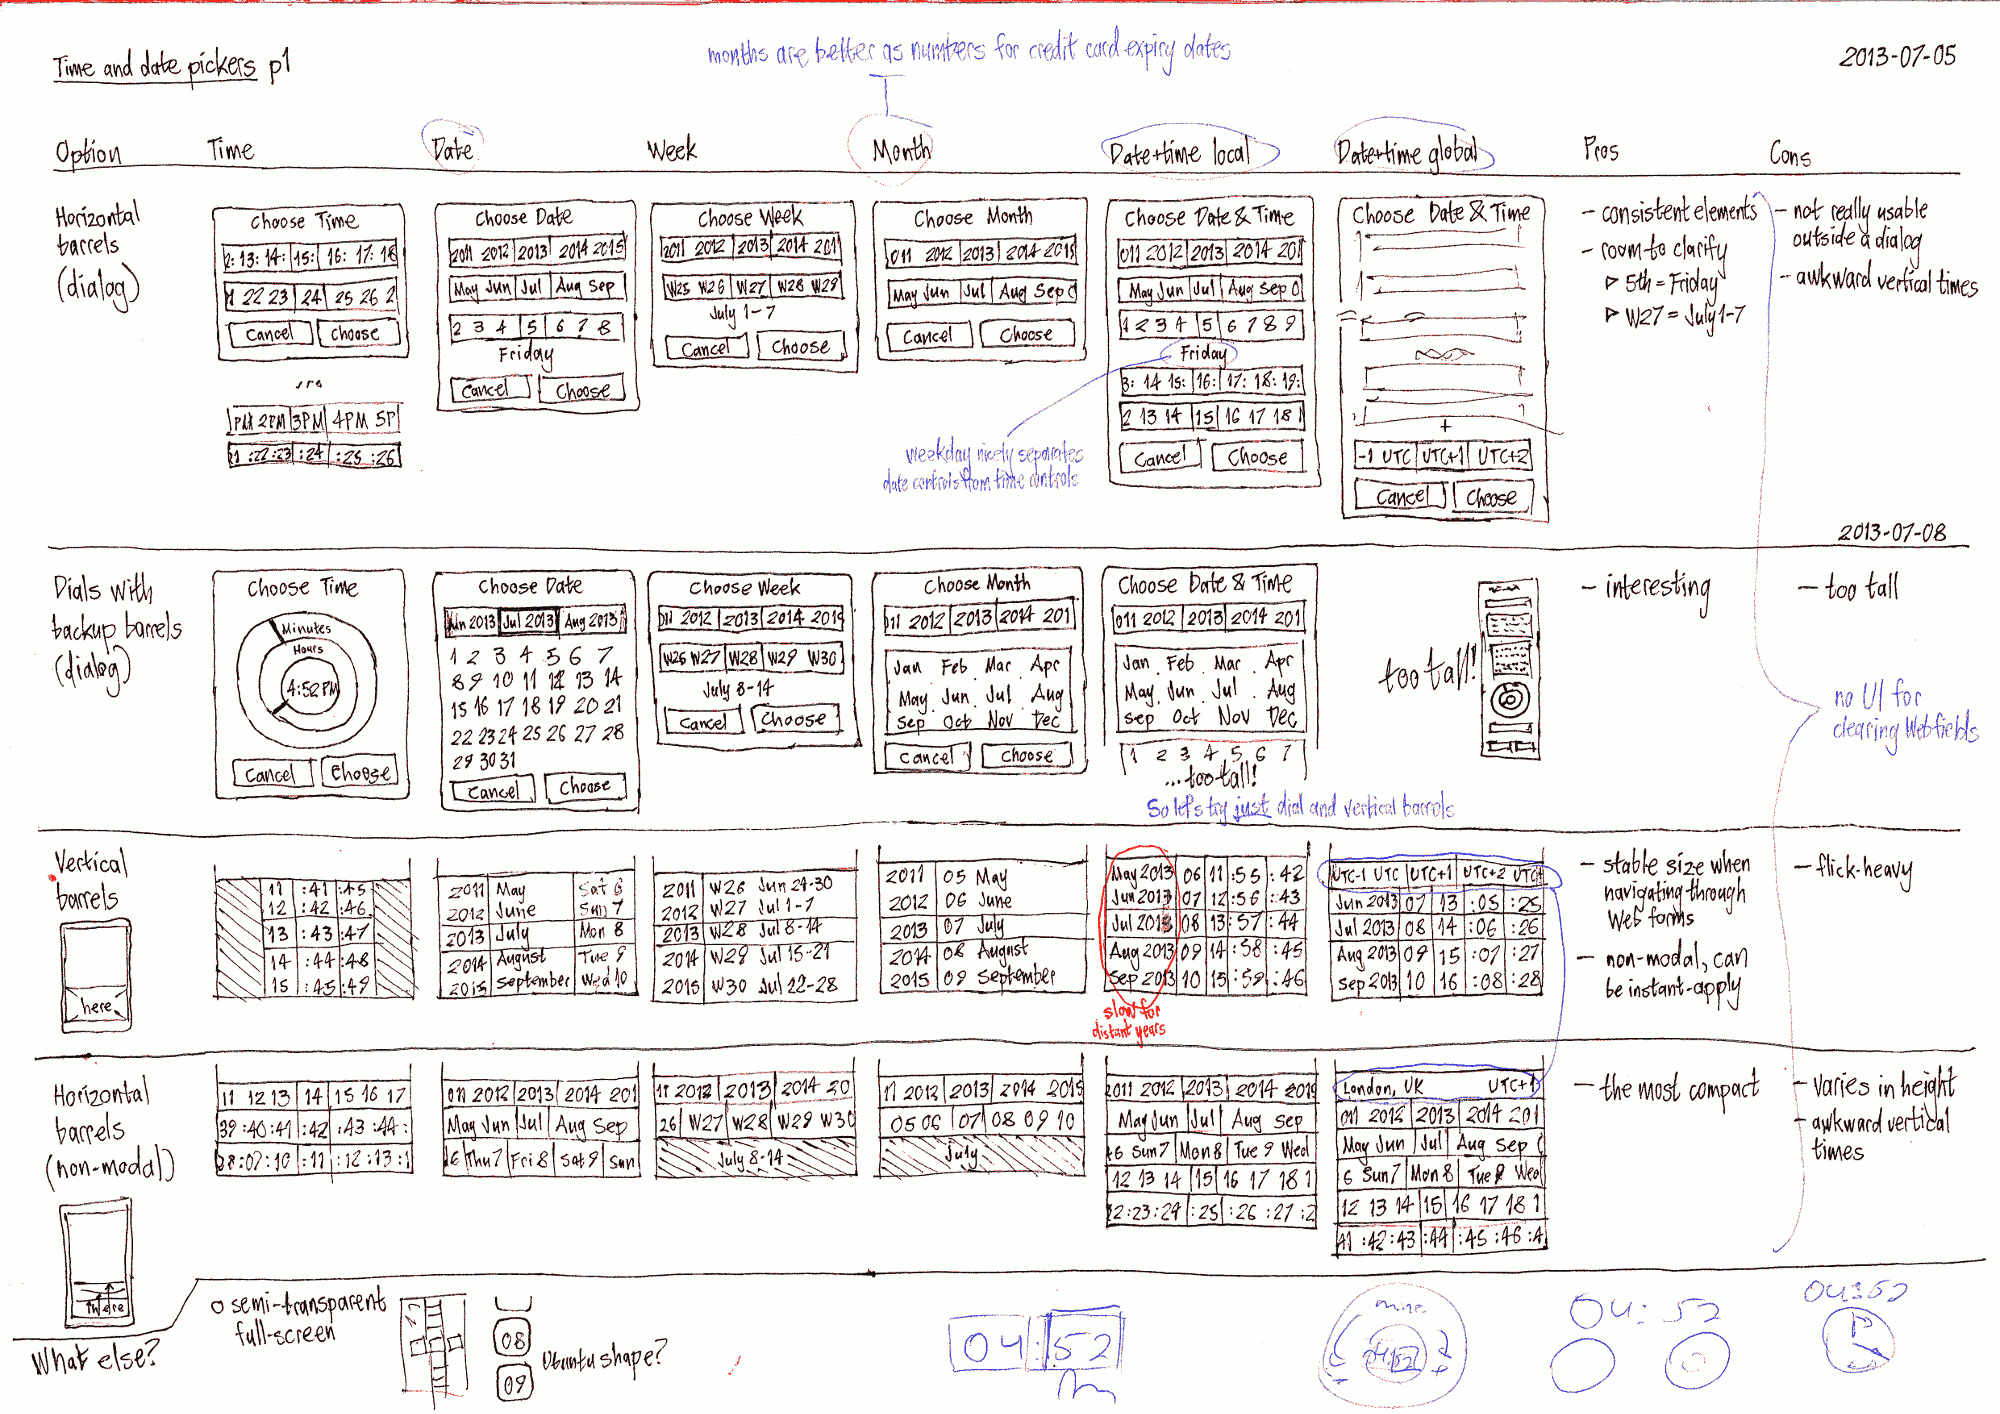 Time and date pickers p1
months are better as numbers for credit card expiry dates
2013-07-05
Option Time Date Week Month Date+time local Date+time global Pros Cons
Horizontal
barrels
(dialog)
Choose Time
2: 13: 14: 15: 16: 17: 18
1 22 23 24 25 26 2
Cancel Choose
PM 2PM 3PM 4PM 5P
21 :22 :23 :24 :25 :26
Choose Date
2011 2012 2013 2014 2015
May Jun Jul Aug Sep
2 3 4 5 6 7 8
Friday
Cancel Choose
Choose Week
2011 2012 2013 2014 201
W25 W26 W27 W28 W29
July 1-7
Cancel Choose
Choose Month
011 2012 2013 2014 2015
May Jun Jul Aug Sep O
Cancel Choose
Choose Date & Time
011 2012 2013 2014 201
May Jun Jul Aug Sep O
1 2 3 4 5 6 7 8 9
Friday
3: 14 15: 16: 17: 18: 19:
2 13 14 15 16 17 18 1
Cancel Choose
weekday nicely separates
date controls from time controls
Choose Date & Time
+
-1 UTC UTC+1 UTC+2
Cancel Choose
- consistent elements
- room to clarify
▷ 5th = Friday
▷ W27 = July 1-7
- not really usable
outside a dialog
- awkward vertical times
2013-07-08
Dials with
backup barrels
(dialog)
Choose Time
Minutes
Hours
4:52 PM
Cancel Choose
Choose Date
Jun 2013 Jul 2013 Aug 2013
1 2 3 4 5 6 7
8 9 10 11 12 13 14
15 16 17 18 19 20 21
22 23 24 25 26 27 28
29 30 31
Cancel Choose
Choose Week
011 2012 2013 2014 2015
W26 W27 W28 W29 W30
July 8-14
Cancel Choose
Choose Month
011 2012 2013 2014 201
Jan Feb Mar Apr
May Jun Jul Aug
Sep Oct Nov Dec
Cancel Choose
Choose Date & Time
011 2012 2013 2014 201
Jan Feb Mar Apr
May Jun Jul Aug
Sep Oct Nov Dec
1 2 3 4 5 6 7
...too tall!
So let's try just dial and vertical barrels
too tall!
- interesting
- too tall
no UI for
clearing Web fields
Vertical
barrels
here
11 :41 :45
12 :42 :46
13 :43 :47
14 :44 :48
15 :45 :49
2011 May Sat 6
2012 June Sun 7
2013 July Mon 8
2014 August Tue 9
2015 September Wed 10
2011 W26 Jun 24-30
2012 W27 Jul 1-7
2013 W28 Jul 8-14
2014 W29 Jul 15-21
2015 W30 Jul 22-28
2011 05 May
2012 06 June
2013 07 July
2014 08 August
2015 09 September
May 2013 06 11 :55 :42
Jun 2013 07 12 :56 :43
Jul 2013 08 13 :57 :44
Aug 2013 09 14 :58 :45
Sep 2013 10 15 :59 :46
slow for
distant years
UTC-1 UTC UTC+1 UTC+2 UTC+
Jun 2013 07 13 :05 :25
Jul 2013 08 14 :06 :26
Aug 2013 09 15 :07 :27
Sep 2013 10 16 :08 :28
- stable size when
navigating through
Web forms
- non-modal, can
be instant-apply
- flick-heavy
Horizontal
barrels
(non-modal)
11 12 13 14 15 16 17
39 :40 :41 :42 :43 :44 :
08 :09 :10 :11 :12 :13 :1
011 2012 2013 2014 201
May Jun Jul Aug Sep
6 Thu 7 Fri 8 Sat 9 Sun
11 2012 2013 2014 20
26 W27 W28 W29 W30
July 8-14
11 2012 2013 2014 2015
05 06 07 08 09 10
July
2011 2012 2013 2014 2015
May Jun Jul Aug Sep
6 Sun 7 Mon 8 Tue 9 Wed
12 13 14 15 16 17 18 1
22 :23 :24 :25 :26 :27 :2
London, UK UTC+1
011 2012 2013 2014 201
May Jun Jul Aug Sep O
6 Sun 7 Mon 8 Tue 9 Wed
12 13 14 15 16 17 18 1
41 :42 :43 :44 :45 :46 :4
- the most compact
- varies in height
- awkward vertical
times
What else?
o semi-transparent
full-screen
08
09
Ubuntu shape?
04:52
04:52
04:52
04:52